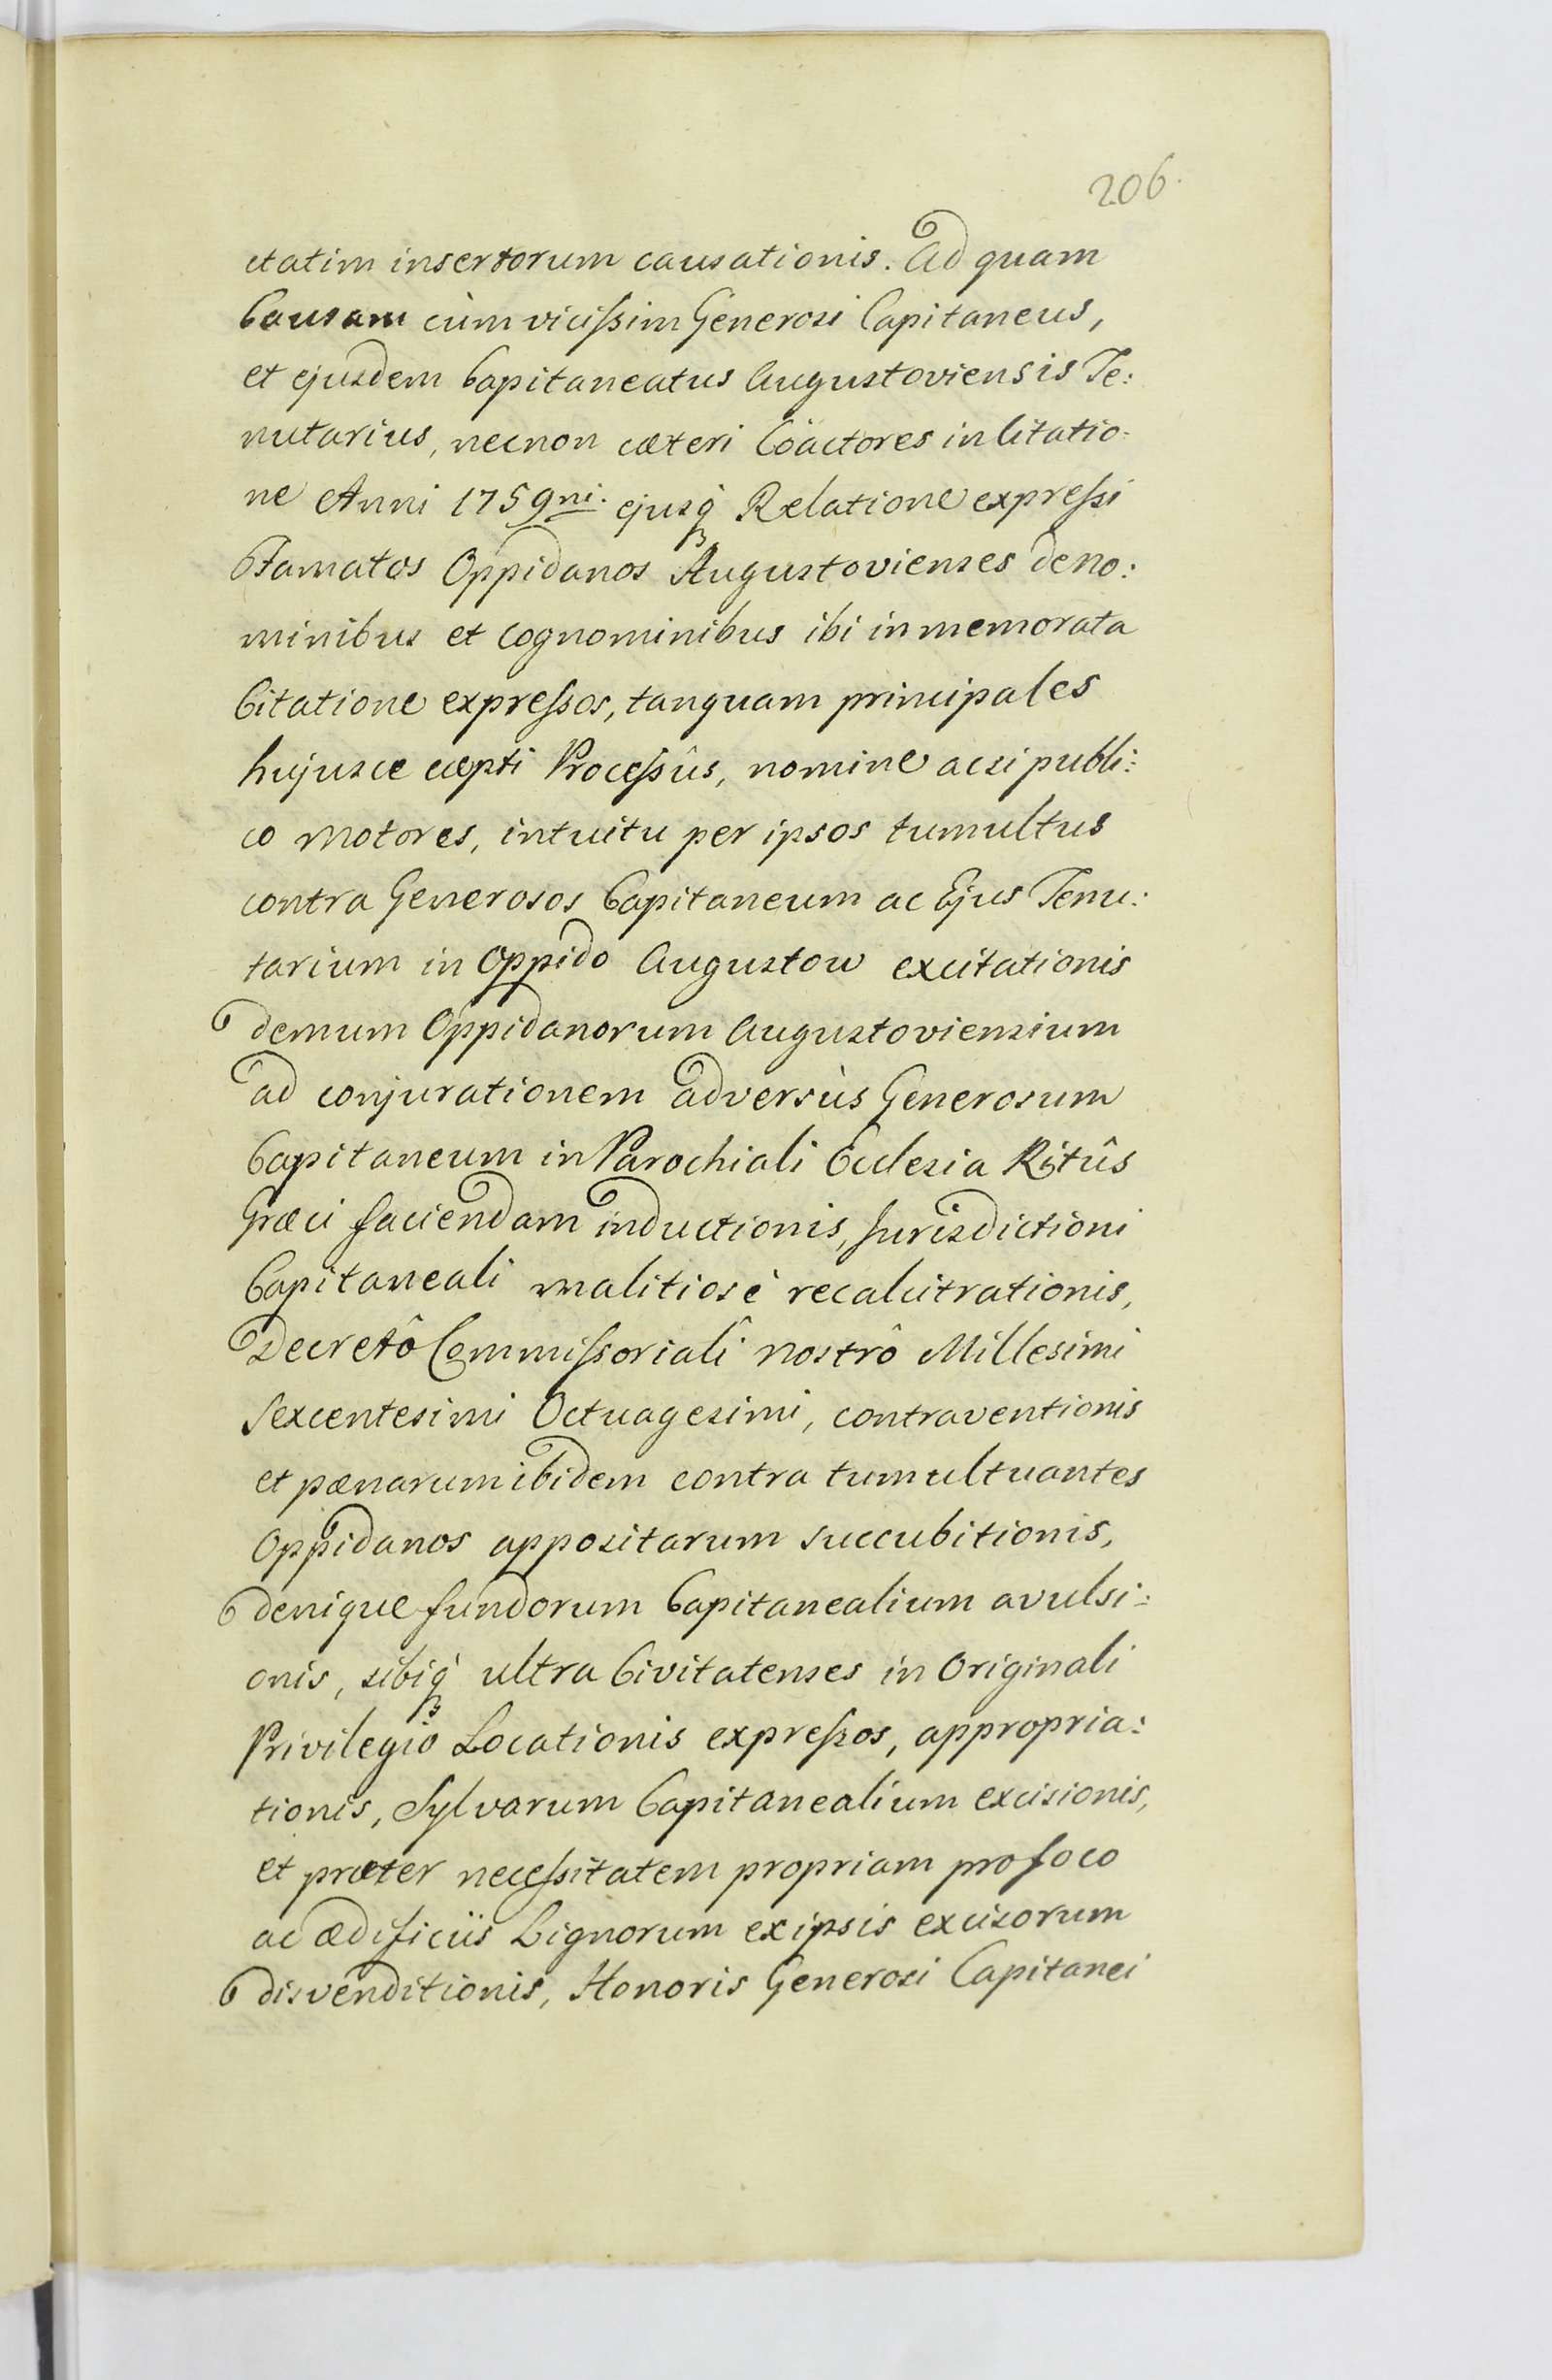 206.
ctatim insertorum causationis. Ad quam
Causam cùm vicissim Generosi Capitaneus,
et ejusdem Capitaneatus Augustoviensis Te:
nutarius, necnon cæteri Coactores in Citatio-
ne Anni 1759ni. ejusq́ Relatione expressi
Famatos Oppidanos Augustovienses de no:
minibus et cognominibus ibi in memorata
Citatione expressos, tanquam principales
hujusce cæpti Processûs, nomine acsi publi:
co motores, intuitu per ipsos tumultus
contra Generosos Capitaneum ac Ejus Tenu:
tarium in Oppido Augustow excitationis
demum Oppidanorum Augustoviensium
ad conjurationem adversùs Generosum
Capitaneum in Parochiali Ecclesia Ritûs
Græci faciendam inductionis, Jurisdictioni
Capitaneali malitiosè recalcitrationis,
Decretô Commissorialî nostrô Millesimi
Sexcentesimi Octuagesimi, contraventionis
et pænarum ibidem contra tumultuantes
Oppidanos appositarum succubitionis,
denique fundorum Capitanealium avulsi:
onis, sibiq́ ultra Civitatenses in Originali
Privilegio Locationis expressos, appropria:
tionis, Sylvarum Capitanealium excisionis,
et præter necessitatem propriam pro foco
ac ædificiis Lignorum ex ipsis excisorum
disvenditionis, Honoris Generosi Capitanei